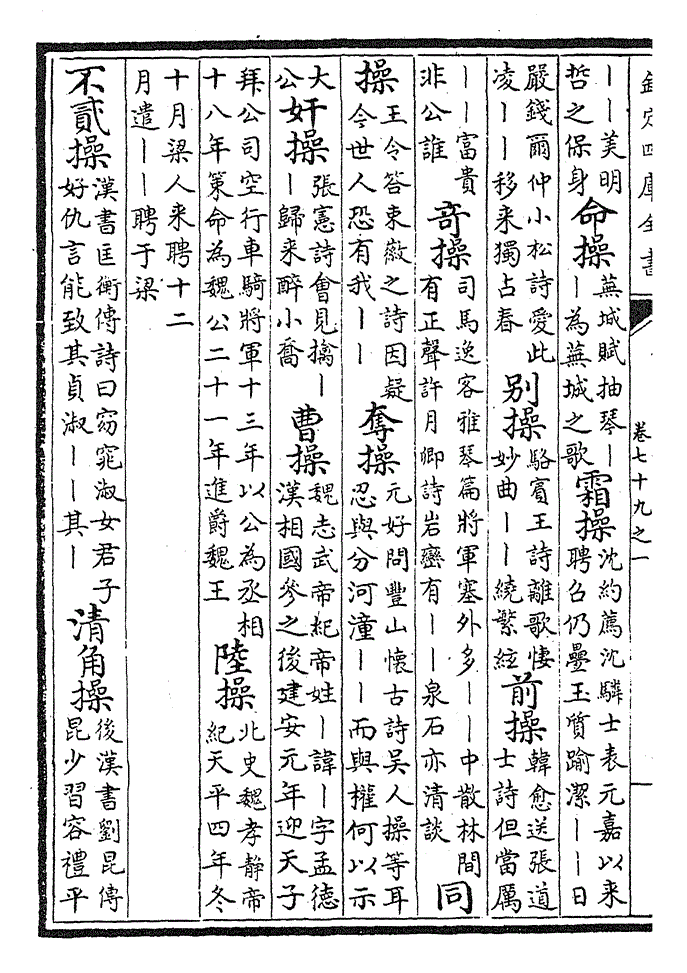 欽定四庫全書
卷七十九之一
——美明
哲之保身
命操
蕪城賦抽琴—
—為蕪城之歌
霜操
沈約薦沈驎士表元嘉以来
聘召仍疊玉質踰潔——日
嚴錢爾仲小松詩愛此
凌——移来獨占春
别操
駱賓王詩離歌悽
妙曲——繞繁絃
前操
韓愈送張道
士詩但當厲
——富貴
非公誰
奇操
司馬逸客雅琴篇將軍塞外多——中散林間
有正聲許月卿詩岩巒有——泉石亦清談
同
操
王令答束徽之詩因疑
今世人恐有我——
奪操
元好問豐山懷古詩吳人操等耳
忍與分河潼——而與權何以示
大
公
奸操
張憲詩會見擒—
—歸来醉小喬
曹操
魏志武帝紀帝姓—諱—字孟德
漢相國參之後建安元年迎天子
拜公司空行車騎將軍十三年以公為丞相
十八年策命為魏公二十一年進爵魏王
陸操
北史魏孝静帝
紀天平四年冬
十月梁人来聘十二
月遣——聘于梁
不貳操
漢書匡衡傳詩曰窈窕淑女君子
好仇言能致其貞淑——其—
清角操
後漢書劉昆傳
昆少習容禮平